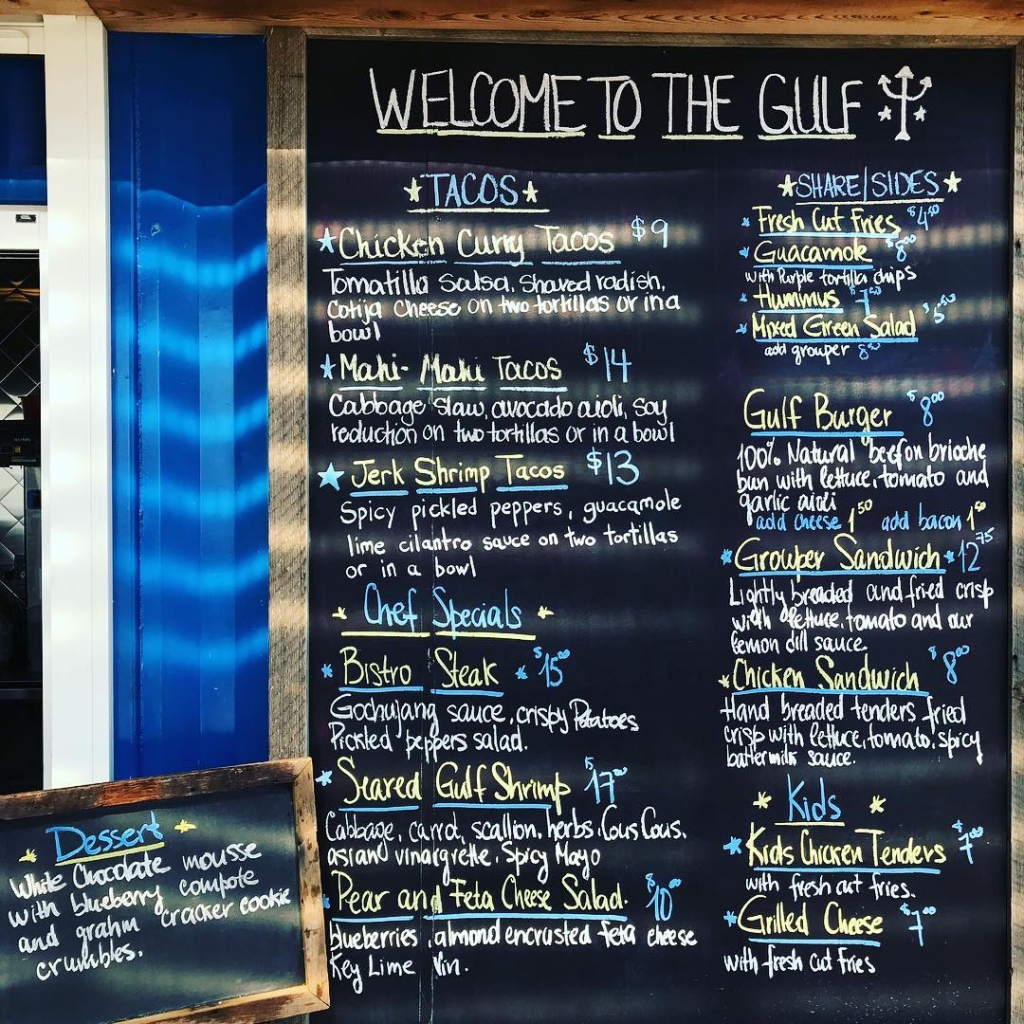 WELCOME TO THE GULF
TACOS
Chicken Curry Tacos $9
Tomatilla Salsa, Shaved radish,
Cotija Cheese on two tortillas or in a
bowl
Mahi-Mahi Tacos $14
Cabbage slaw, avocado aioli, soy
reduction on two tortillas or in a bowl
Jerk Shrimp Tacos $13
Spicy pickled peppers, guacamole
lime cilantro sauce on two tortillas
or in a bowl
Chef Specials
Bistro Steak $15⁰⁰
Gochujang sauce, crispy Potatoes
Pickled peppers salad.
Seared Gulf Shrimp 17⁰⁰
Cabbage, carrot, scallion, herbs, Cous Cous,
asian vinaigrette, Spicy Mayo
Pear and Feta Cheese Salad. $10⁰⁰
blueberries, almond encrusted feta cheese
Key Lime Vin.
SHARE/SIDES
Fresh Cut Fries $4⁵⁰
Guacamole $8⁰⁰
with Purple tortilla chips
Hummus $7⁵⁰
Mixed Green Salad $6⁵⁰
add grouper 8⁵⁰
Gulf Burger $8⁰⁰
100% Natural beef on brioche
bun with lettuce, tomato and
garlic aioli
add cheese 1⁵⁰ add bacon 1⁵⁰
Grouper Sandwich 12⁷⁵
Lightly breaded and fried crisp
with lettuce, tomato and our
lemon dill sauce.
Chicken Sandwich $8⁰⁰
Hand breaded tenders fried
crisp with lettuce, tomato, spicy
buttermilk sauce.
Kids
Kids Chicken Tenders $7⁰⁰
with fresh cut fries.
Grilled Cheese $7⁰⁰
with fresh cut Fries
Dessert
White Chocolate mousse
with blueberry compote
and grahm cracker cookie
crumbles.